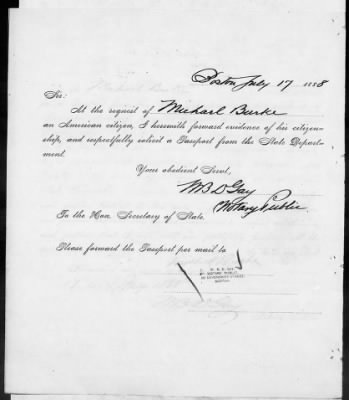 Boston July 17 1888
Sir:
At the request of Michael Burke
an American citizen, I herewith forward evidence of his citizen-
ship, and respectfully solicit a Passport from the State Depart-
ment.
Your obedient Servt,
W B D Gay
Notary Public
To the Hon. Secretary of State.
Please forward the Passport per mail to
W. B. D. GAY,
NOTARY PUBLIC,
BOSTON.